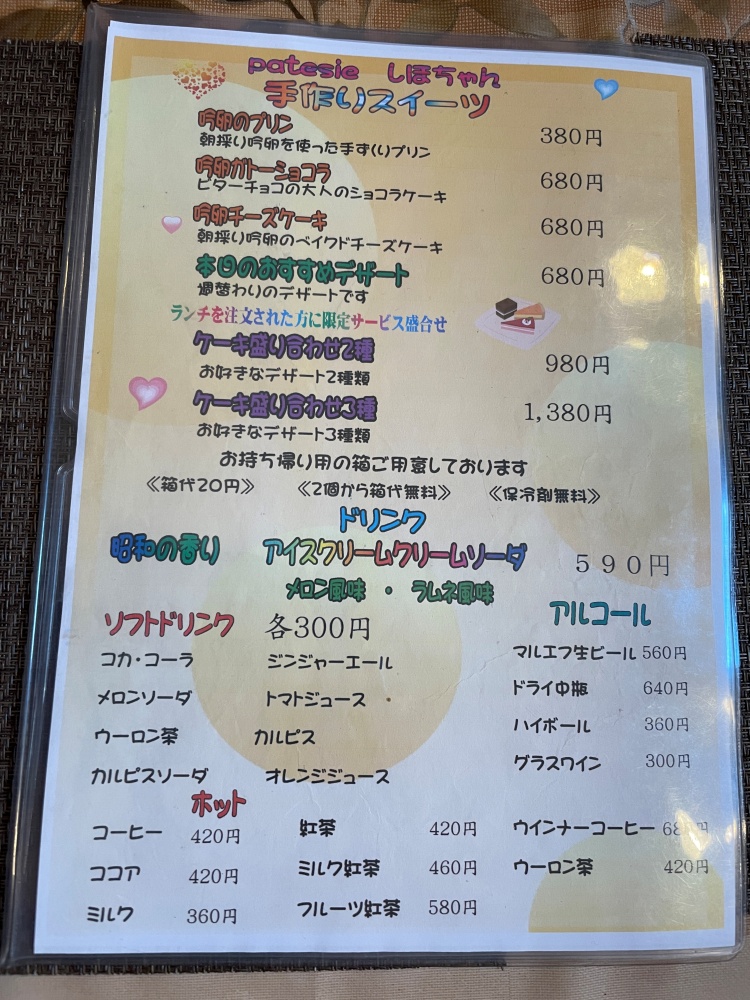 patesie しほちゃん
手作りスイーツ
吟卵のプリン 380円
朝採り吟卵を使った手ずくりプリン
吟卵ガトーショコラ 680円
ビターチョコの大人のショコラケーキ
吟卵チーズケーキ 680円
朝採り吟卵のベイクドチーズケーキ
本日のおすすめデザート 680円
週替わりのデザートです
ランチを注文された方に限定サービス盛合せ
ケーキ盛り合わせ2種 980円
お好きなデザート2種類
ケーキ盛り合わせ3種 1,380円
お好きなデザート3種類
お持ち帰り用の箱ご用意しております
≪箱代20円≫ ≪2個から箱代無料≫ ≪保冷剤無料≫
ドリンク
昭和の香り アイスクリームクリームソーダ 590円
メロン風味 ・ ラムネ風味
ソフトドリンク 各300円
コカ・コーラ ジンジャーエール
メロンソーダ トマトジュース
ウーロン茶 カルピス
カルピスソーダ オレンジジュース
アルコール
マルエフ生ビール 560円
ドライ中瓶 640円
ハイボール 360円
グラスワイン 300円
ホット
コーヒー 420円 紅茶 420円 ウインナーコーヒー
ココア 420円 ミルク紅茶 460円 ウーロン茶 420円
ミルク 360円 フルーツ紅茶 580円